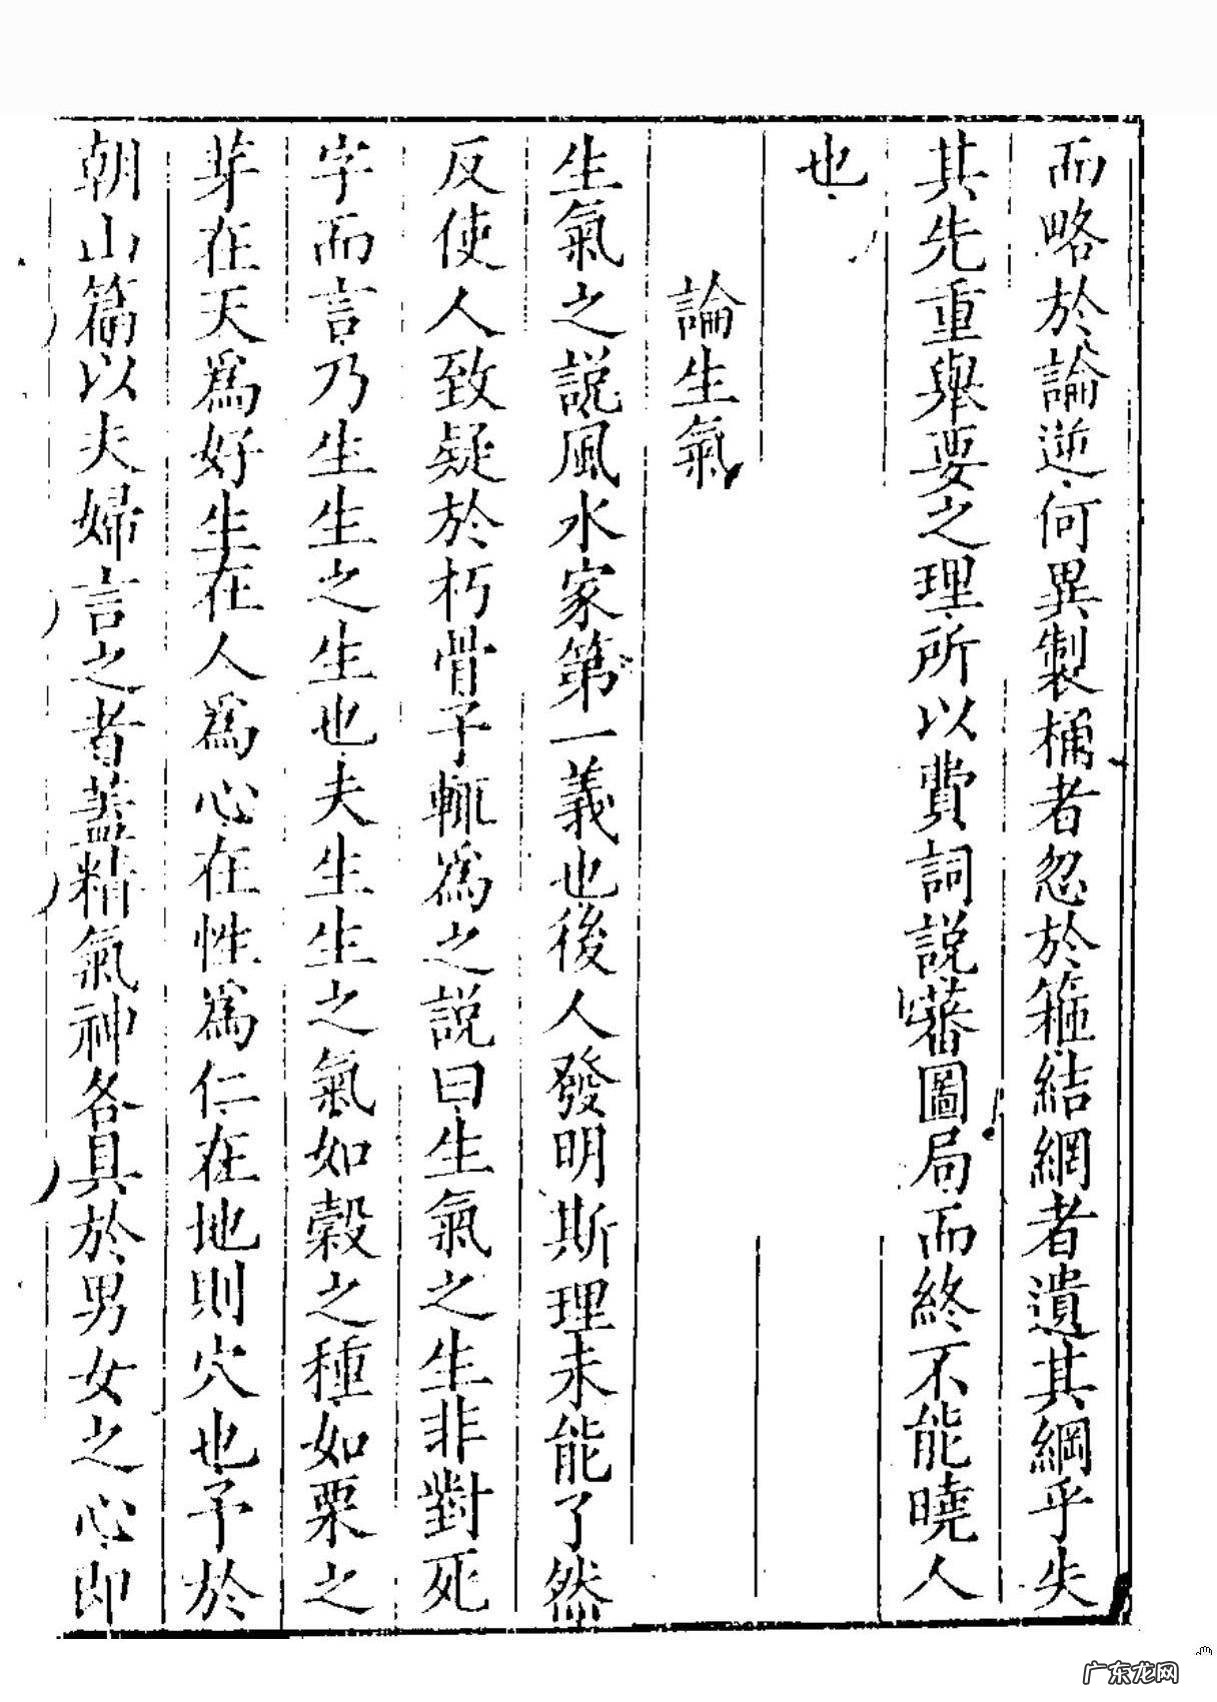 而略於論逆何異製桶者忽於箍結網者遺其綱乎失
其先重舉要之理所以費詞說蕃圖局而終不能曉人
也
論生氣
生氣之說風水家第一義也後人發明斯理未能了然
反使人致疑於朽骨予輒為之說曰生氣之生非對死
字而言乃生生之生也夫生生之氣如穀之種如粟之
芽在天為好生在人為心在性為仁在地則穴也予於
朝山篇以夫婦言之者蓋精氣神各具於男女之心即
广东龙网